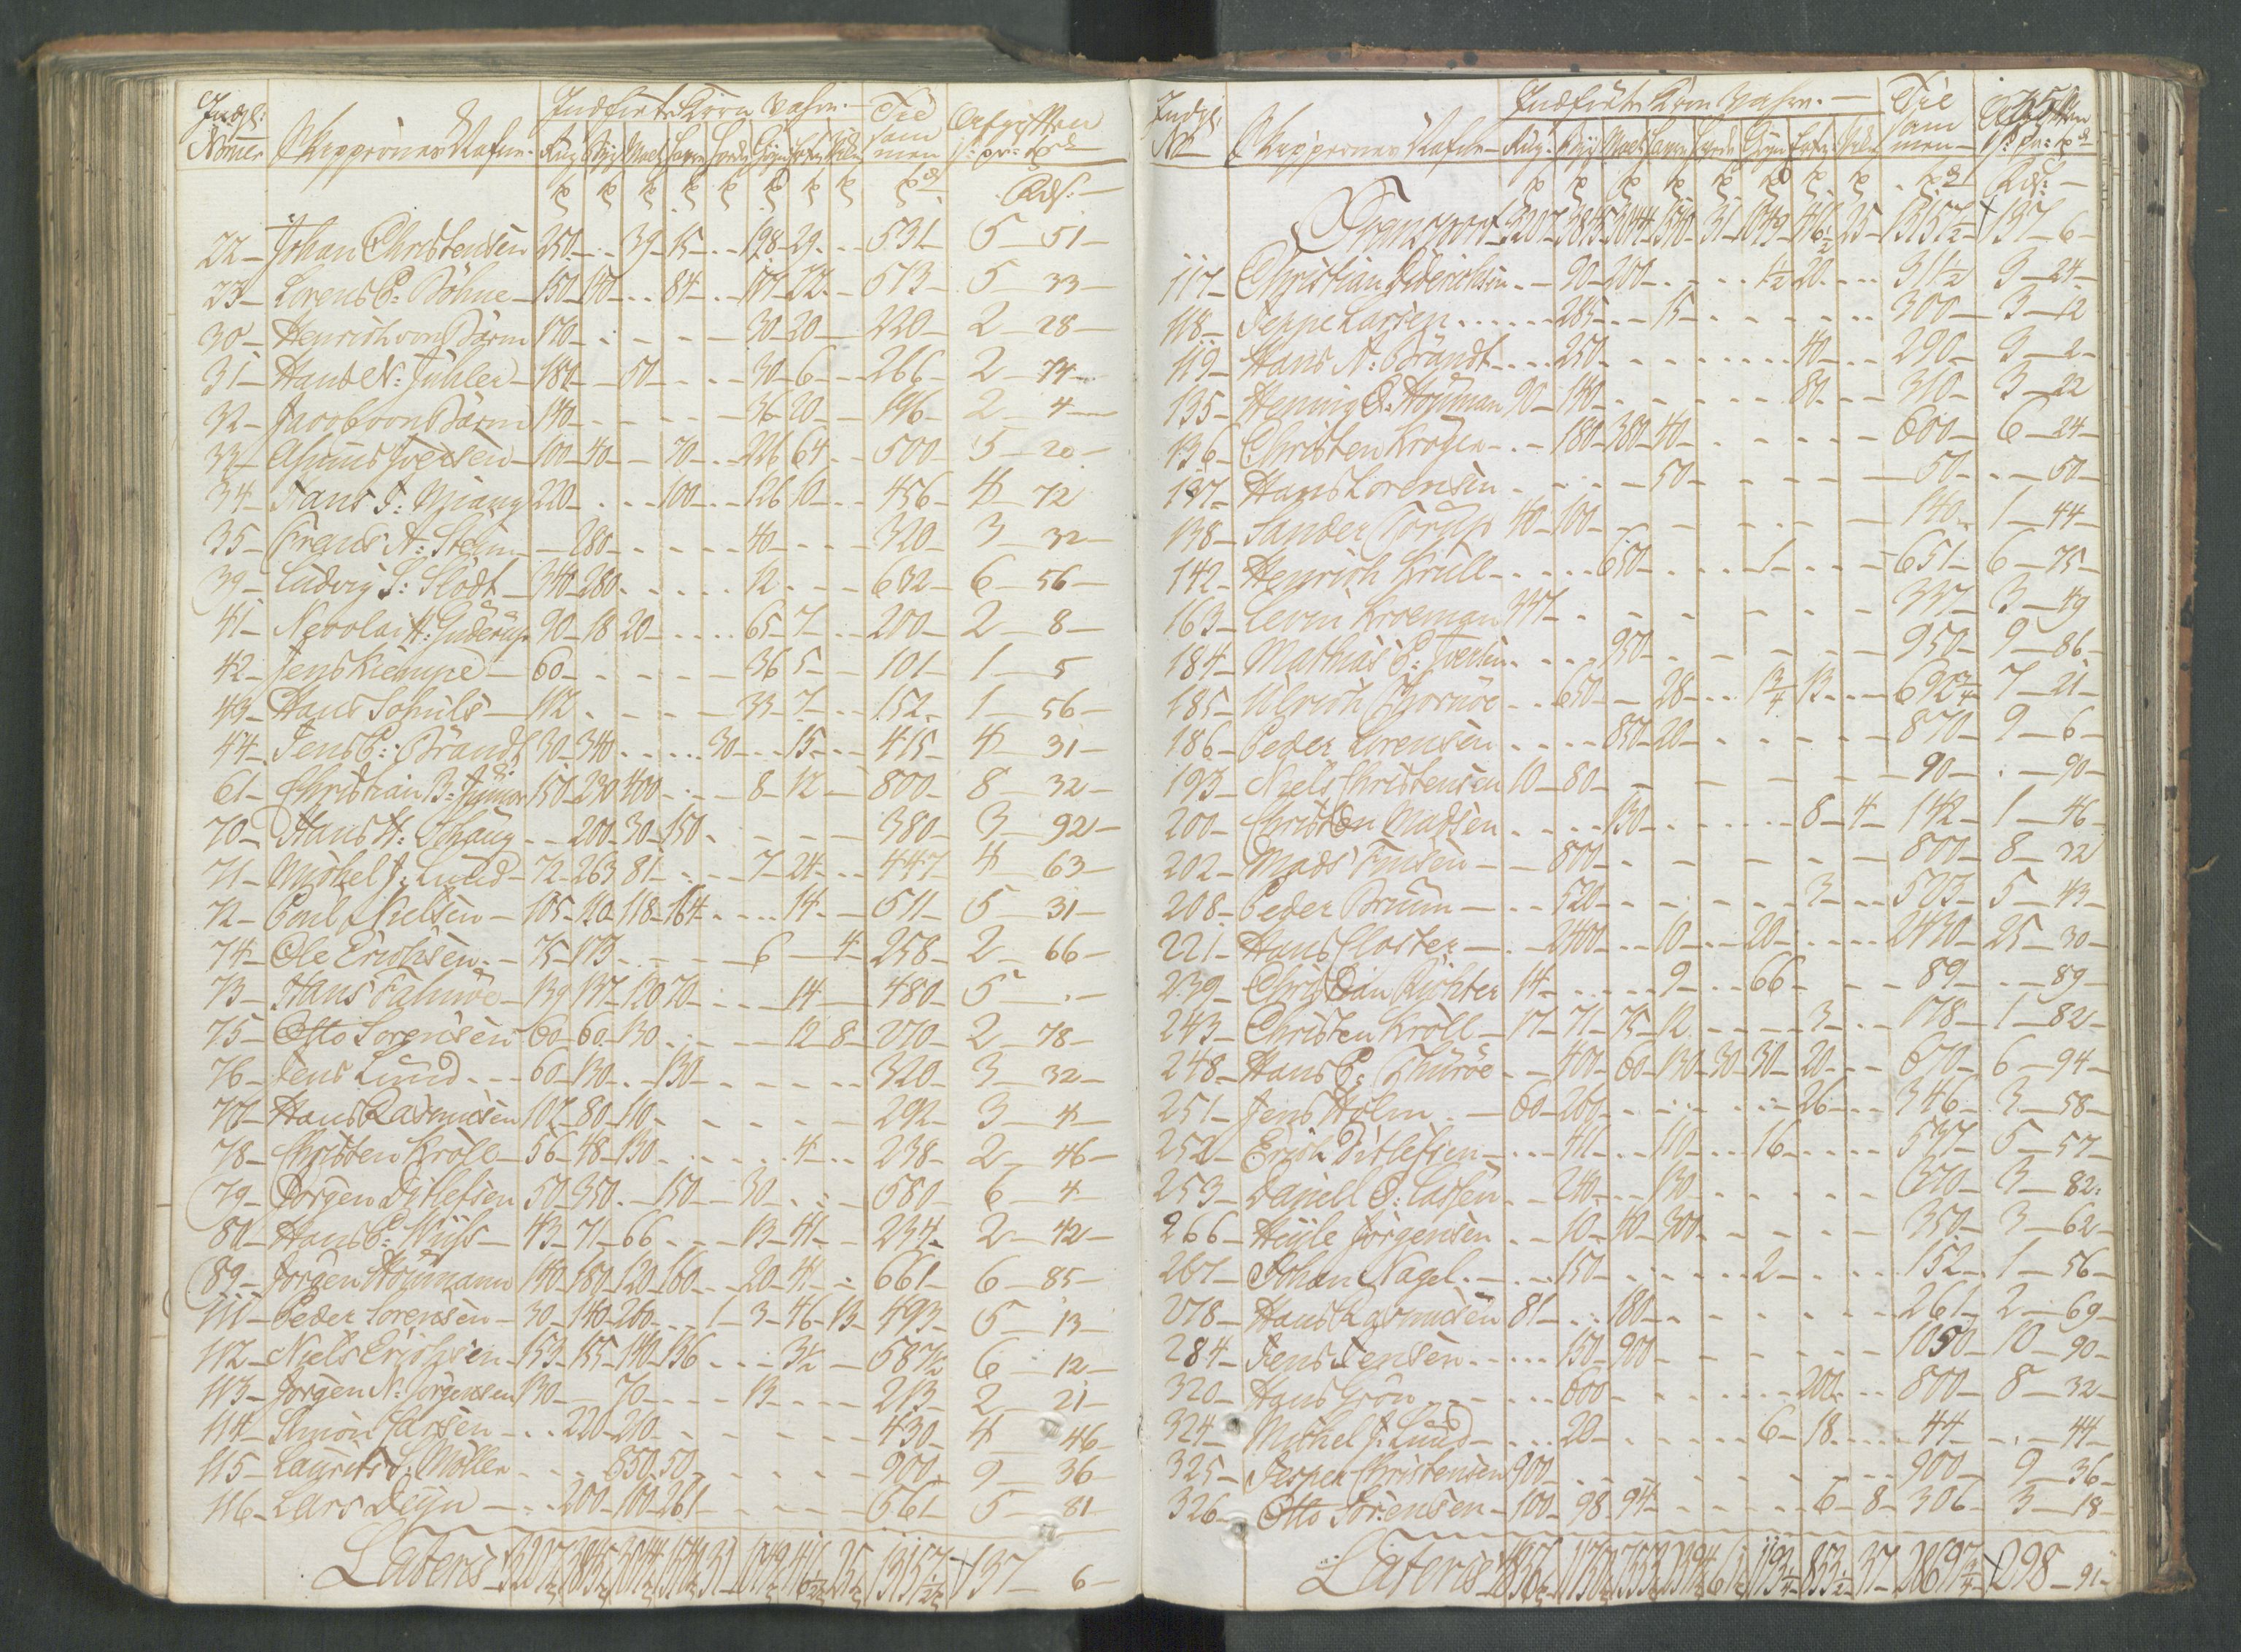 Indgl: Nomer Skippernes Nafne Indførte Korn Vahre Tilsammen Afgiften
Rdl:
22 Johan Christensen 250 39 15 198 29 531 5 51
23 Lorens P: Böhne 150 140 84 117 22 513 5 33
30 Henrich von Barm 170 30 20 220 2 28
31 Hans N: Jühler 180 50 30 6 266 2 74
32 Jacob von Barm 140 36 20 196 2 4
33 Asmus Iversen 100 40 70 226 64 500 5 20
34 Hans J: Mjang 220 100 126 10 456 4 72
35 Frens A: Stejn 280 40 320 3 32
39 Ludvig S: Slodt 340 280 12 632 6 56
41 Nicolai H: Guderup 90 18 20 65 7 200 2 8
42 Jens Kiempe 60 36 5 101 1 5
43 Hans Schuls 112 33 7 152 1 56
44 Jens P: Brandt 30 340 30 15 415 4 31
61 Christian B: Junior 150 230 400 8 12 800 8 32
70 Hans H: Schaug 200 30 150 380 3 92
71 Michel J: Lund 72 263 81 7 24 447 4 63
72 Poul Nielsen 105 110 118 164 14 511 5 31
74 Ole Erichsen 75 173 6 4 258 2 66
73 Hans Falmöe 139 137 120 70 14 480 5
75 Otto Sorensen 60 60 130 12 8 270 2 78
76 Jens Lund 60 130 130 320 3 32
77 Hans Rasmusen 102 80 110 292 3 4
78 Christen Kröll 56 48 130 4 238 2 46
79 Jorgen Ditlefsen 50 350 150 30 580 6 4
80 Hans P: 43 71 66 13 41 234 2 42
89 Jorgen Hoÿsmann 140 180 120 160 20 41 661 6 85
111 Peder Sorensen 30 140 260 1 3 46 13 493 5 13
112 Niels Erichsen 153 155 140 136 3½ 587½ 6 12
113 Jorgen N: Jorgensen 130 70 13 213 2 21
114 Simon Carsen 220 210 430 4 46
115 Laurits S: Möller 850 50 900 9 36
116 Lars Dejn 200 100 261 561 5 81
Lateris 3207 3845 3044 1540 31 1049 416½ 25 13157½ 137 6
Indgl. No Skippernes Nafne Indførte Korn Vahre Til sammen
Rdl:
Transport 3207 3845 3044 1540 31 1049 416½ 25 13157½ 137 6
117 Christian Diderichsen 90 200 1½ 20 311½ 3 24
118 Jeppe Larsen 285 15 300 3 12
119 Hans N: Brandt 250 40 290 3 2
135 Henning C: Hoÿman 90 140 80 310 3 22
136 Christen Kroger 180 380 40 600 6 24
137 Hans Lorensen 50 50 50
138 Sander Torup 40 100 140 1 44
142 Henrich Krull 650 1 651 6 75
163 Levin Kroeman 337 337 3 49
184 Mathias P: Iversen 950 950 9 86
185 Ulrich Thoröe 650 28 1¾ 13 692¾ 7 21
186 Peder Lorensen 850 20 870 9 6
193 Niels Christensen 10 80 90 90
200 Christen Madsen 130 8 4 142 1 46
202 Mads Jensen 800 800 8 32
208 Peder Bruun 520 3 523 5 43
221 Hans Closter 2400 10 20 2430 25 30
239 Christian Richter 14 9 66 89 89
243 Christen Kröll 17 71 75 12 3 178 1 82
248 Hans P: Thuröe 400 60 130 30 30 20 670 6 94
251 Jens Holm 60 260 26 346 3 58
252 Erich Ditlefsen 110 16 537 5 57
253 Daniell S: Cassen 240 130 370 3 82
266 Heÿle Jörgensen 10 40 300 350 3 62
267 Johan Nagel 150 2 152 1 56
278 Hans Rasmusen 81 180 261 2 69
284 Jens Jensen 150 900 1050 10 90
320 Hans Grön 600 200 800 8 32
324 Michel J: Lund 20 6 18 44 44
325 Jesper Christensen 900 900 9 36
326 Otto Sörensen 100 98 94 6 8 306 3 18
Lateris 37 28697¾ 298 91